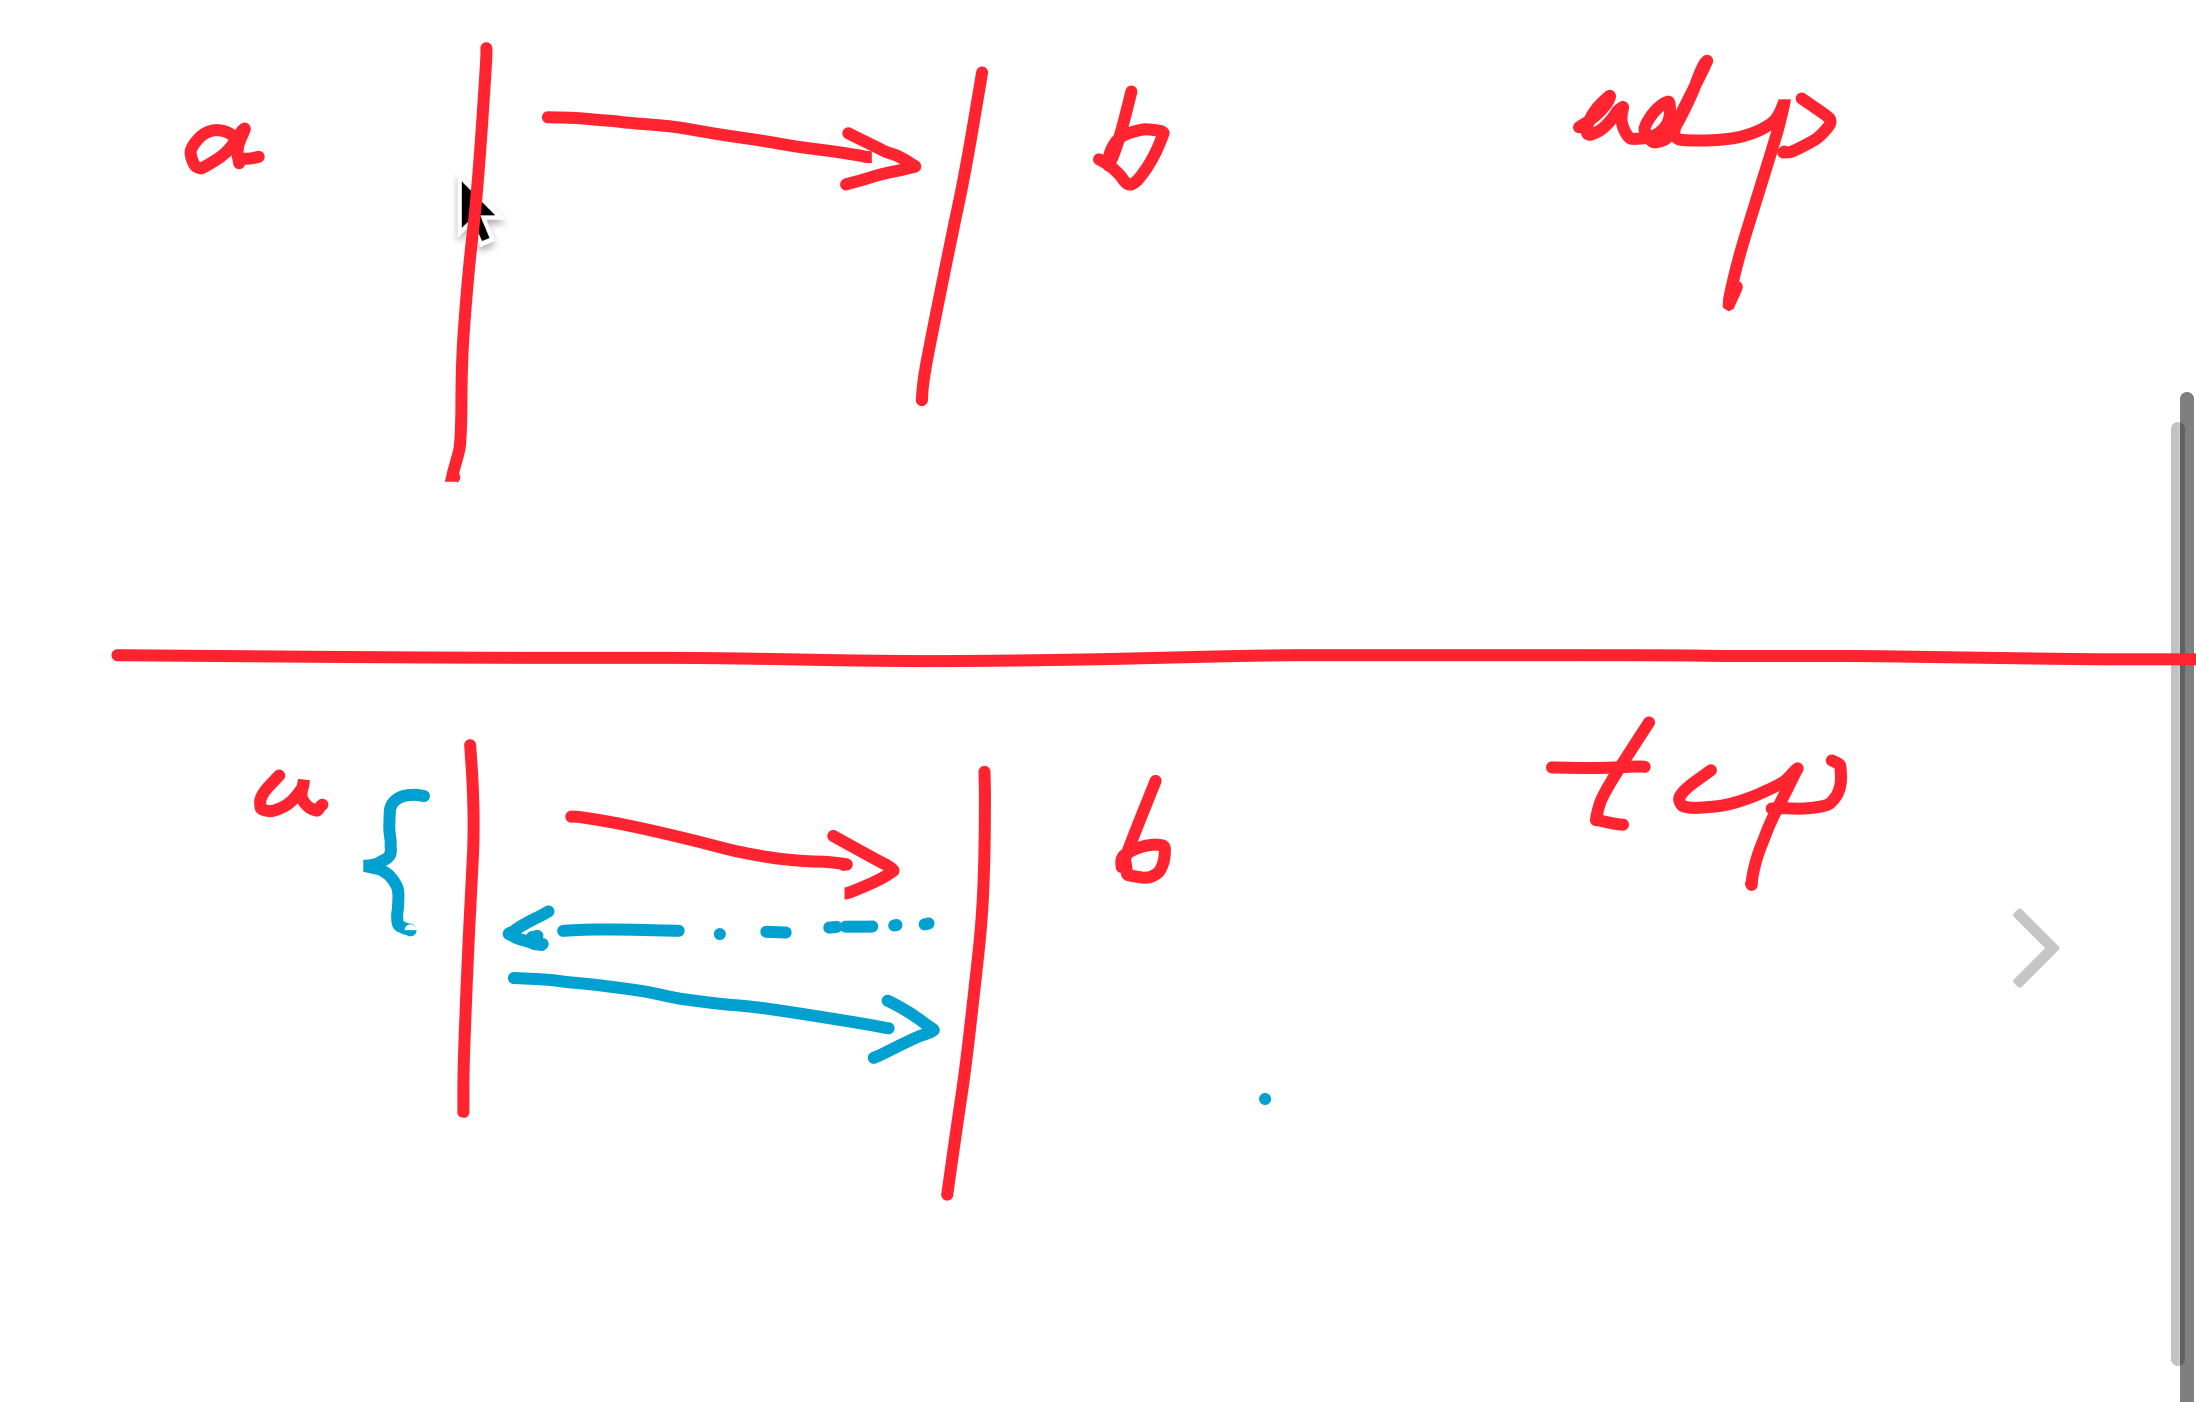 a b udp
a b tcp